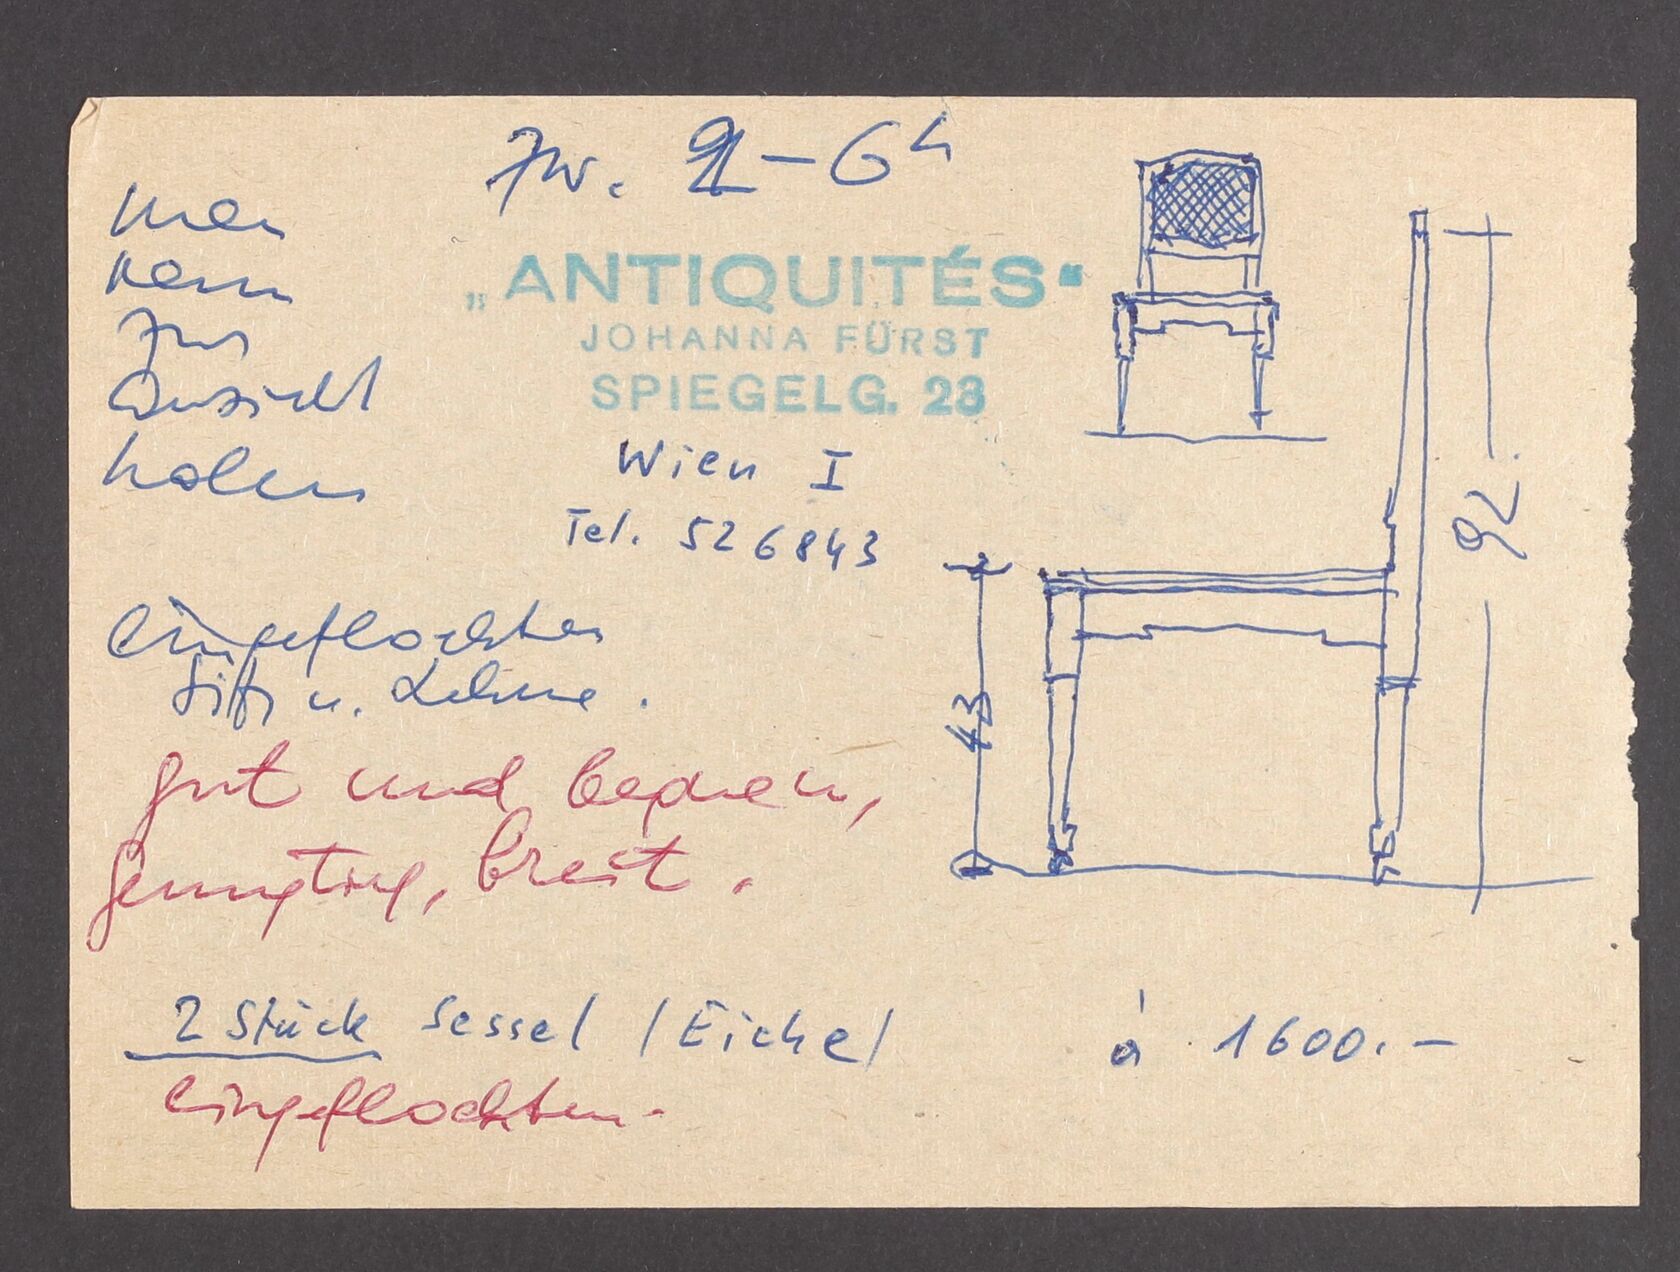 Zw. 2-6h
man
kann
zur
Ansicht
holen
„ANTIQUITÉS“
JOHANNA FÜRST
SPIEGELG. 23
Wien I
Tel. 526843
92
43
eingeflochten
Sitz u. Lehne.
gut und bequem,
breit.
2 Stück Sessel /Eiche/
à 1600.-
eingeflochten.